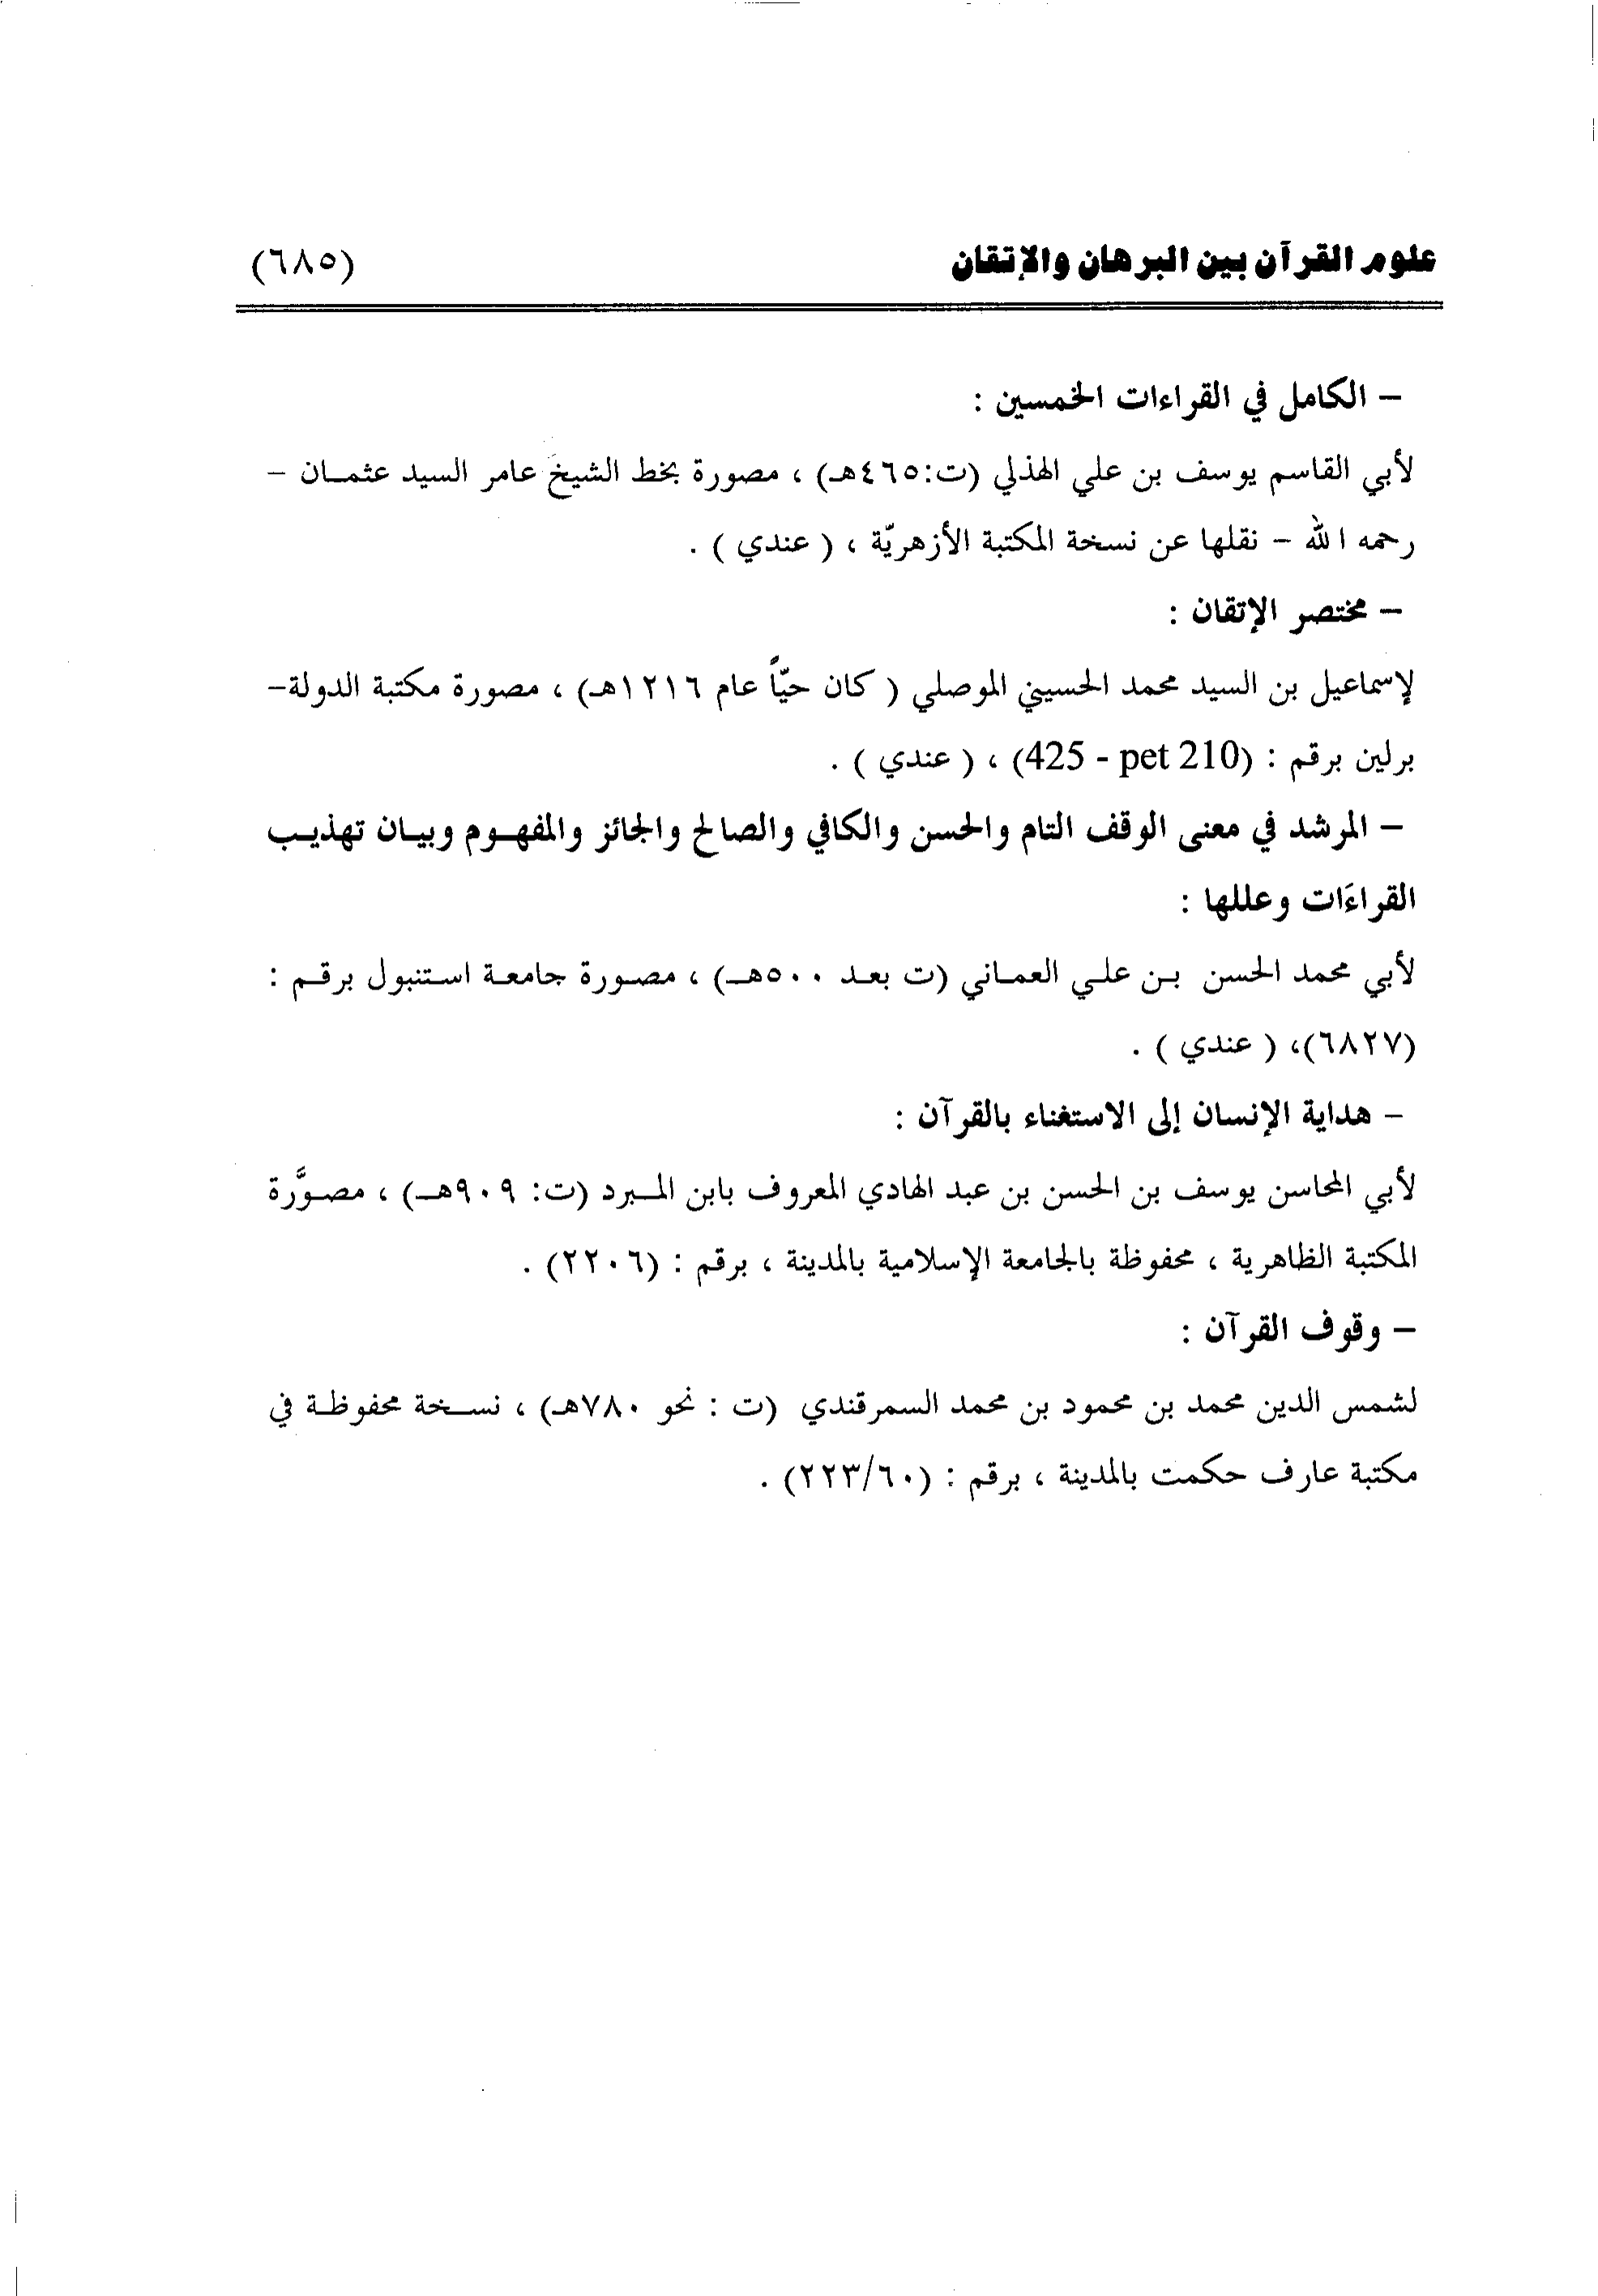 علوم القرآن بين البرهان والإتقان (٦٨٥)
– الكامل في القراءات الخمسين :
لأبي القاسم يوسف بن علي الهذلي (ت:٤٦٥هـ) ، مصورة بخط الشيخ عامر السيد عثمـان –
رحمه الله – نقلها عن نسخة المكتبة الأزهريّة ، ( عندي ) .
– مختصر الإتقان :
لإسماعيل بن السيد محمد الحسيني الموصلي ( كان حيّاً عام ١٢١٦هـ) ، مصورة مكتبة الدولة–
برلين برقم : (425 - pet 210) ، ( عندي ) .
– المرشد في معنى الوقف التام والحسن والكافي والصالح والجائز والمفهـوم وبيـان تهذيـب
القراءَات وعللها :
لأبي محمد الحسن بـن علـي العمـاني (ت بعـد ٥٠٠هــ) ، مصـورة جامعـة استنبول برقـم :
(٦٨٢٧)، ( عندي ) .
– هداية الإنسان إلى الاستغناء بالقرآن :
لأبي المحاسن يوسف بن الحسن بن عبد الهادي المعروف بابن المـبرد (ت: ٩٠٩هــ) ، مصـوَّرة
المكتبة الظاهرية ، محفوظة بالجامعة الإسلامية بالمدينة ، برقم : (٢٢٠٦) .
– وقوف القرآن :
لشمس الدين محمد بن محمود بن محمد السمرقندي (ت : نحو ٧٨٠هـ) ، نسـخة محفوظـة في
مكتبة عارف حكمت بالمدينة ، برقم : (٢٢٣/٦٠) .